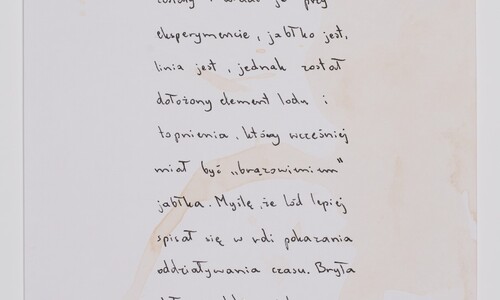 eksperymencie, jabłko jest,
linia jest, jednak został
dołożony element lodu i
topnienia, który wcześniej
miał być „brązowieniem”
jabłka. Myślę, że lód lepiej
spisał się w roli pokazania
oddziaływania czasu. Bryła